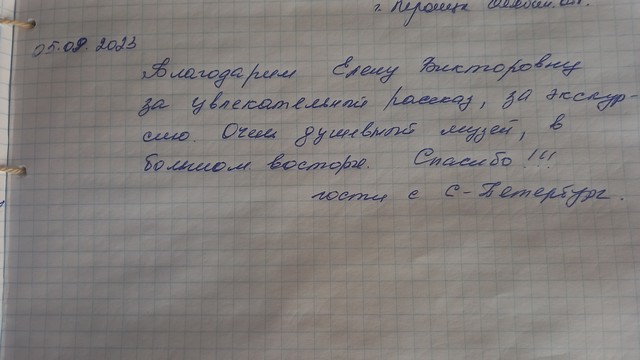 05.08.2023
Благодарим Елену Викторовну
за увлекательный рассказ, за экскур-
сию. Очень душевный музей, в
большом восторге. Спасибо!!!
гости с С-Петербург.